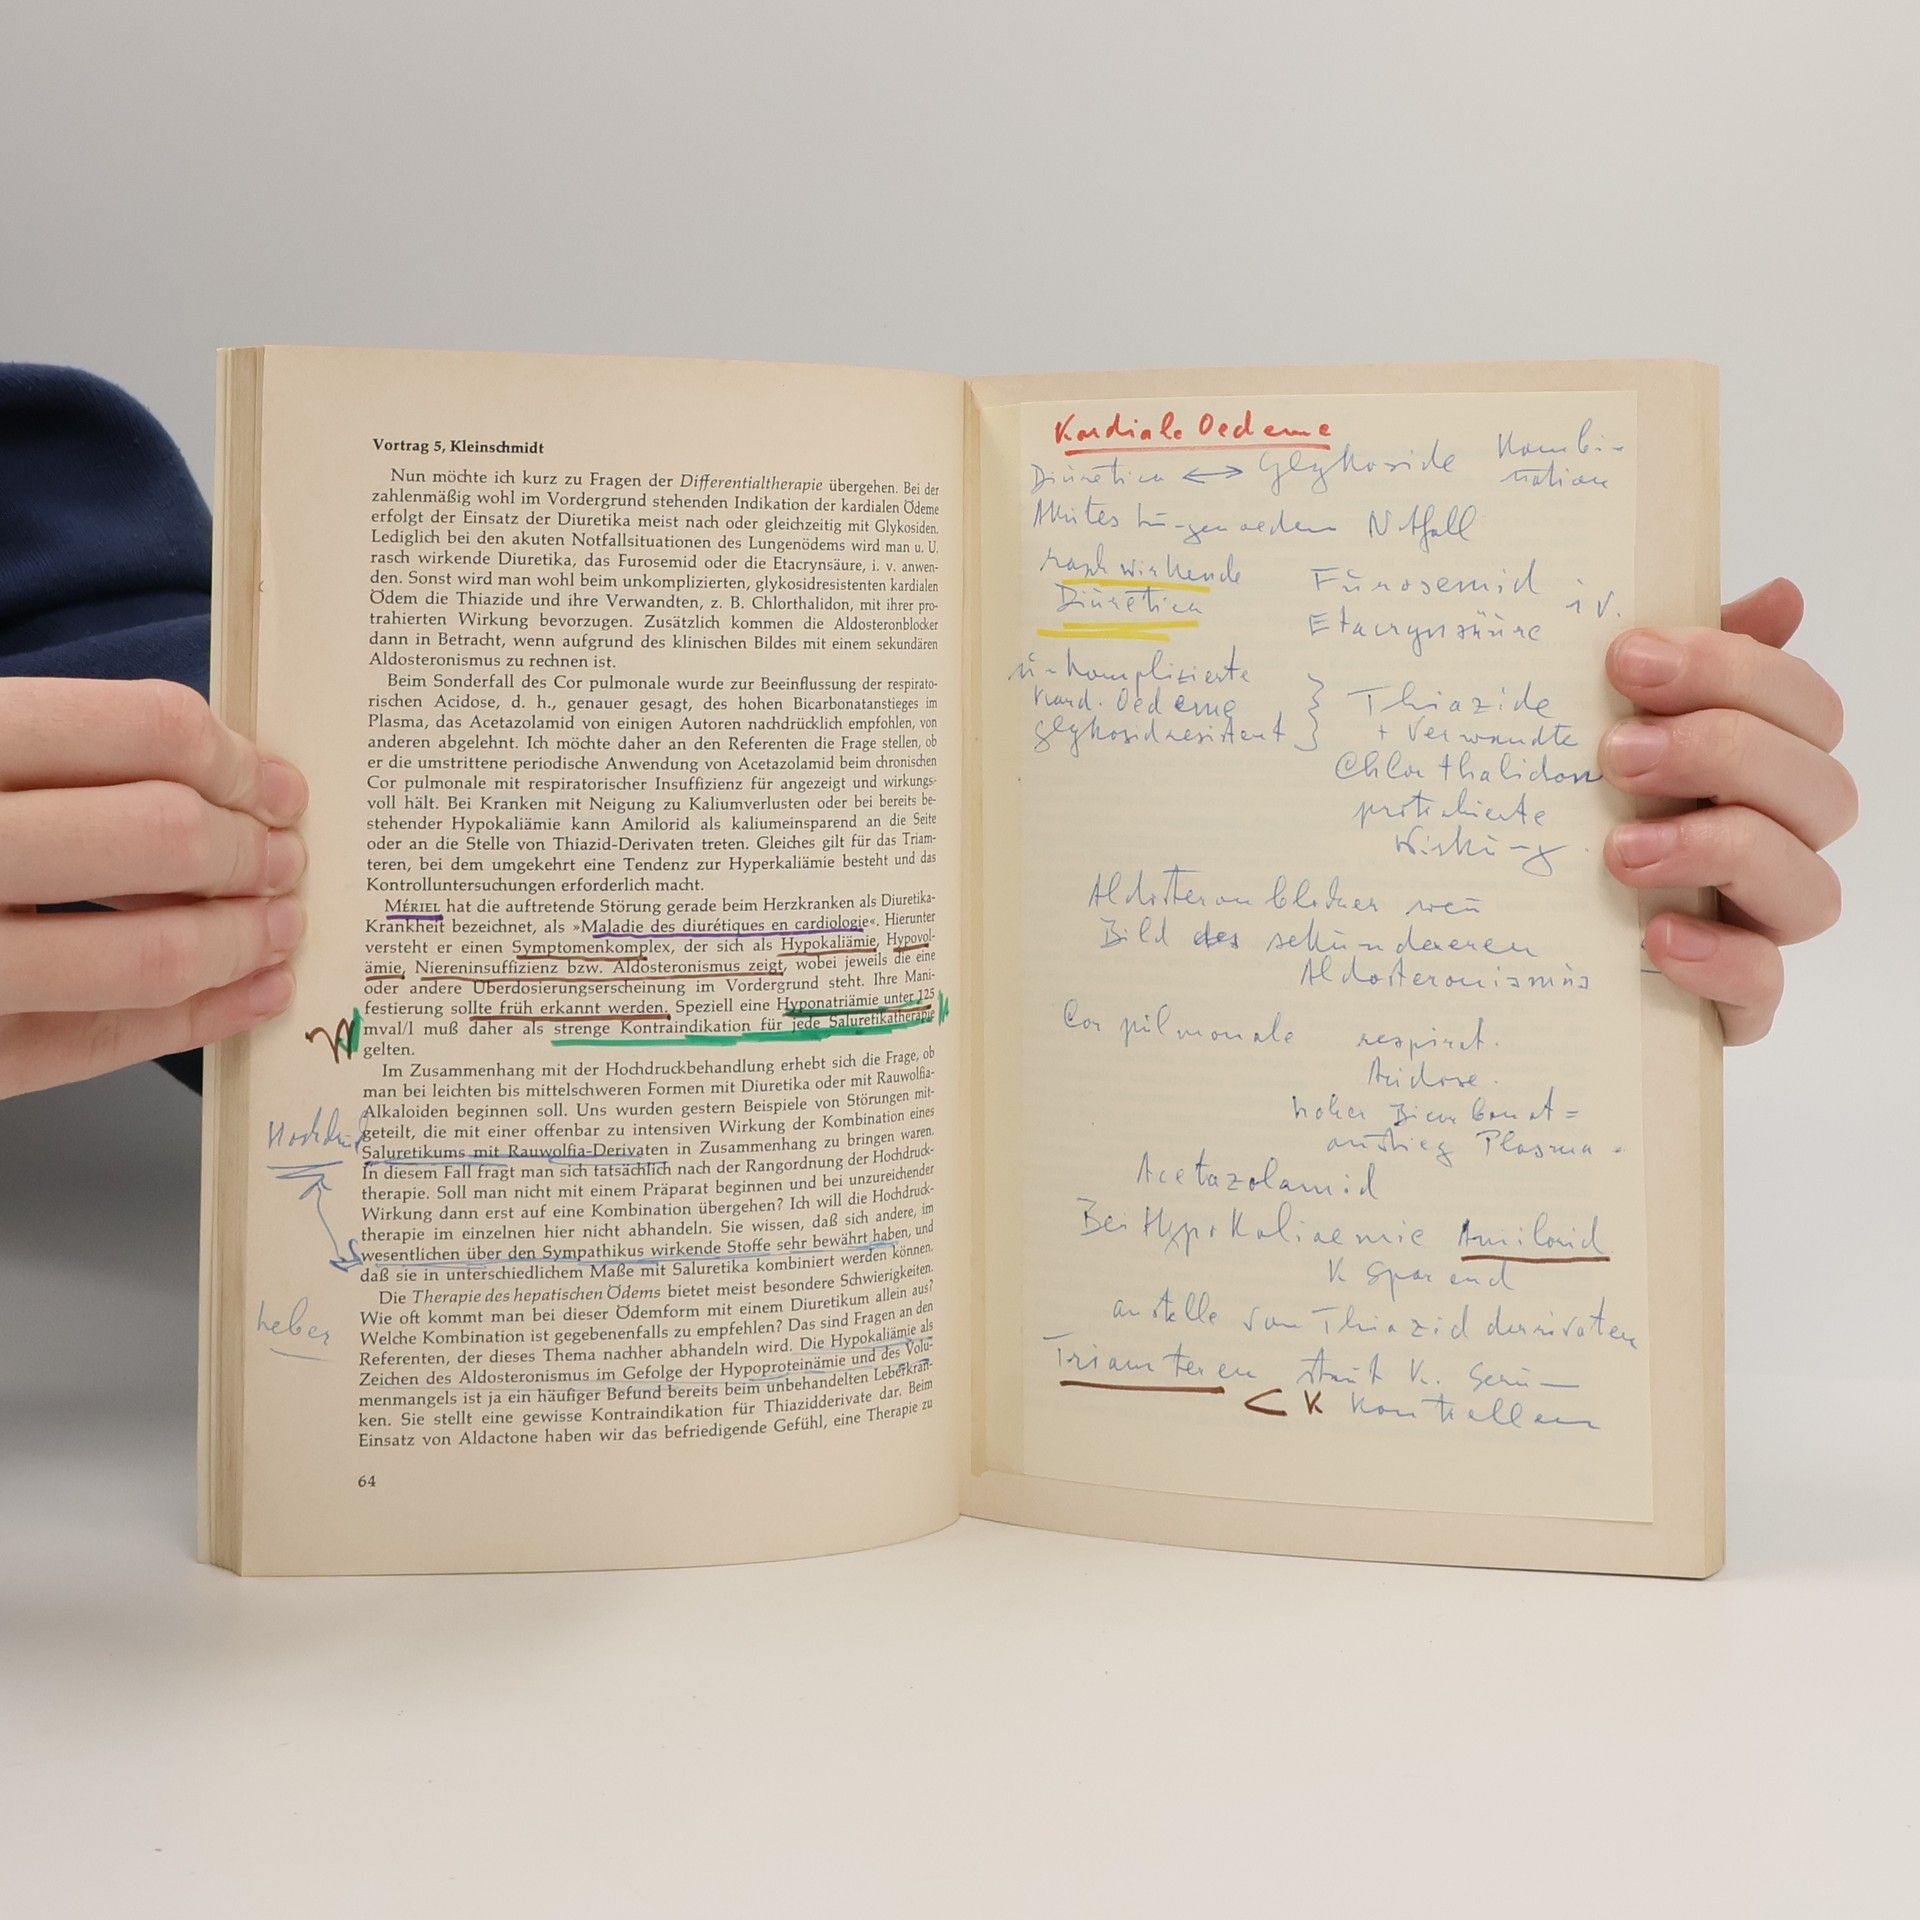 Vortrag 5, Kleinschmidt
Nun möchte ich kurz zu Fragen der Differentialtherapie übergehen. Bei der
zahlenmäßig wohl im Vordergrund stehenden Indikation der kardialen Ödeme
erfolgt der Einsatz der Diuretika meist nach oder gleichzeitig mit Glykosiden.
Lediglich bei den akuten Notfallsituationen des Lungenödems wird man u. U.
rasch wirkende Diuretika, das Furosemid oder die Etacrynsäure, i. v. anwen-
den. Sonst wird man wohl beim unkomplizierten, glykosidresistenten kardialen
Ödem die Thiazide und ihre Verwandten, z. B. Chlorthalidon, mit ihrer pro-
trahierten Wirkung bevorzugen. Zusätzlich kommen die Aldosteronblocker
dann in Betracht, wenn aufgrund des klinischen Bildes mit einem sekundären
Aldosteronismus zu rechnen ist.
Beim Sonderfall des Cor pulmonale wurde zur Beeinflussung der respirato-
rischen Acidose, d. h., genauer gesagt, des hohen Bicarbonatanstieges im
Plasma, das Acetazolamid von einigen Autoren nachdrücklich empfohlen, von
anderen abgelehnt. Ich möchte daher an den Referenten die Frage stellen, ob
er die umstrittene periodische Anwendung von Acetazolamid beim chronischen
Cor pulmonale mit respiratorischer Insuffizienz für angezeigt und wirkungs-
voll hält. Bei Kranken mit Neigung zu Kaliumverlusten oder bei bereits be-
stehender Hypokaliämie kann Amilorid als kaliumeinsparend an die Seite
oder an die Stelle von Thiazid-Derivaten treten. Gleiches gilt für das Triam-
teren, bei dem umgekehrt eine Tendenz zur Hyperkaliämie besteht und das
Kontrolluntersuchungen erforderlich macht.
MÉRIEL hat die auftretende Störung gerade beim Herzkranken als Diuretika-
Krankheit bezeichnet, als »Maladie des diurétiques en cardiologie«. Hierunter
versteht er einen Symptomenkomplex, der sich als Hypokaliämie, Hypovol-
ämie, Niereninsuffizienz bzw. Aldosteronismus zeigt, wobei jeweils die eine
oder andere Überdosierungserscheinung im Vordergrund steht. Ihre Mani-
festierung sollte früh erkannt werden. Speziell eine Hyponatriämie unter 125
mval/l muß daher als strenge Kontraindikation für jede Saluretikatherapie
gelten.
Im Zusammenhang mit der Hochdruckbehandlung erhebt sich die Frage, ob
man bei leichten bis mittelschweren Formen mit Diuretika oder mit Rauwolfia-
Alkaloiden beginnen soll. Uns wurden gestern Beispiele von Störungen mit-
geteilt, die mit einer offenbar zu intensiven Wirkung der Kombination eines
Saluretikums mit Rauwolfia-Derivaten in Zusammenhang zu bringen waren.
In diesem Fall fragt man sich tatsächlich nach der Rangordnung der Hochdruck-
therapie. Soll man nicht mit einem Präparat beginnen und bei unzureichender
Wirkung dann erst auf eine Kombination übergehen? Ich will die Hochdruck-
therapie im einzelnen hier nicht abhandeln. Sie wissen, daß sich andere, im
wesentlichen über den Sympathikus wirkende Stoffe sehr bewährt haben, und
daß sie in unterschiedlichem Maße mit Saluretika kombiniert werden können.
Die Therapie des hepatischen Ödems bietet meist besondere Schwierigkeiten.
Wie oft kommt man bei dieser Ödemform mit einem Diuretikum allein aus?
Welche Kombination ist gegebenenfalls zu empfehlen? Das sind Fragen an den
Referenten, der dieses Thema nachher abhandeln wird. Die Hypokaliämie als
Zeichen des Aldosteronismus im Gefolge der Hypoproteinämie und des Volu-
menmangels ist ja ein häufiger Befund bereits beim unbehandelten Leberkran-
ken. Sie stellt eine gewisse Kontraindikation für Thiazidderivate dar. Beim
Einsatz von Aldactone haben wir das befriedigende Gefühl, eine Therapie zu
64
Hochdruck
Leber
Kardiale Oedeme
Diuretica ↔ Glykoside Kombi-
nation
Akutes Lungenoedem Notfall
rasch wirkende
Diuretica
Furosemid
Etacrynsäure i V.
unkomplizierte
Kard. Oedeme
glykosidresistent
} Thiazide
+ Verwandte
Chlorthalidon
protrahierte
Wirkung.
Aldosteronblocker wenn
Bild des sekundereren
Aldosteronismus
Cor pulmonale respirat.
Acidose.
hoher Bicarbonat=
anstieg Plasma =
Acetazolamid
Bei Hypokaliaemie Amilorid
K Sparend
anstelle von Thiazid derivaten
Triamteren K. Serum
< K Kontrollen